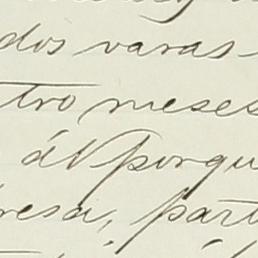 dos varas
tro meses
porqu
resa, part